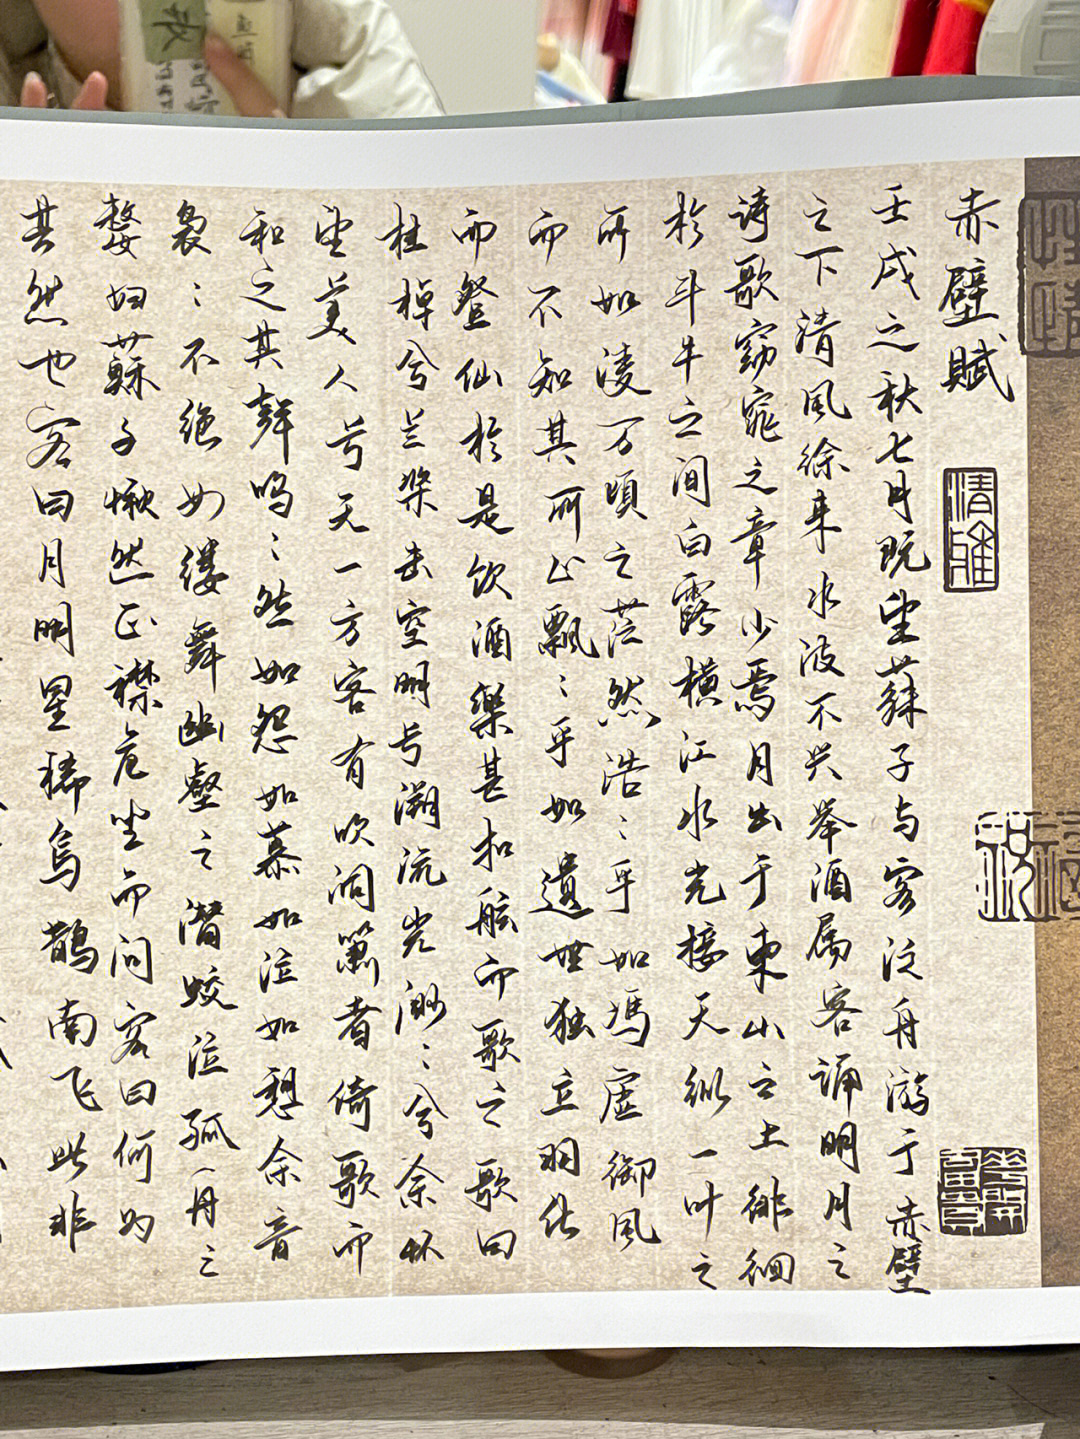 赤壁赋
壬戌之秋七月既望蘇子与客泛舟游于赤壁
之下清风徐来水波不兴举酒属客诵明月之
诗歌窈窕之章少焉月出于東山之上徘徊
於斗牛之间白露横江水光接天纵一叶之
所如凌万頃之茫然浩〻乎如馮虚御风
而不知其所止飘〻乎如遗世独立羽化
而登仙於是饮酒樂甚扣舷而歌之歌曰
桂棹兮兰桨击空明兮溯流光渺〻兮余怀
望美人兮天一方客有吹洞箫者倚歌而
和之其声呜〻然如怨如慕如泣如愬余音
袅〻不绝如缕舞幽壑之潜蛟泣孤舟之
嫠妇蘇子愀然正襟危坐而问客曰何为
其然也客曰月明星稀烏鹊南飞此非
清雅